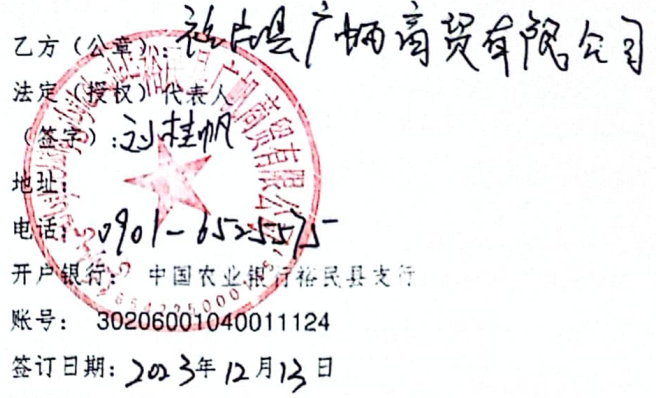 乙方（公章）：裕民县广炳商贸有限公司
法定（授权）代表人
（签字）：刘桂帆
地址：
电话：0901-6525575
开户银行： 中国农业银行裕民县支行
账号： 30206001040011124
签订日期：2023年12月13日
广炳商贸有限公司